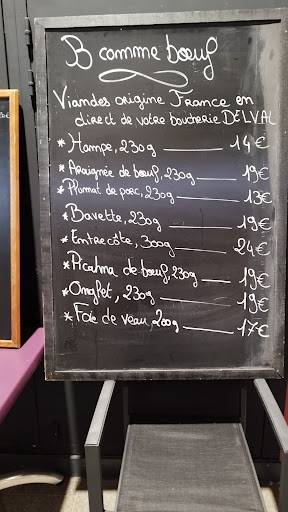 B comme bœuf
Viandes origine France en
direct de votre boucherie DELVAL
* Hampe, 230g 14€
* Araignée de bœuf, 230g 19€
* Plumat de porc, 230g 13€
* Bavette, 230g 19€
* Entrecôte, 300g 24€
* Picahna de bœuf, 230g 19€
* Onglet, 230g 19€
* Foie de veau, 200g 17€